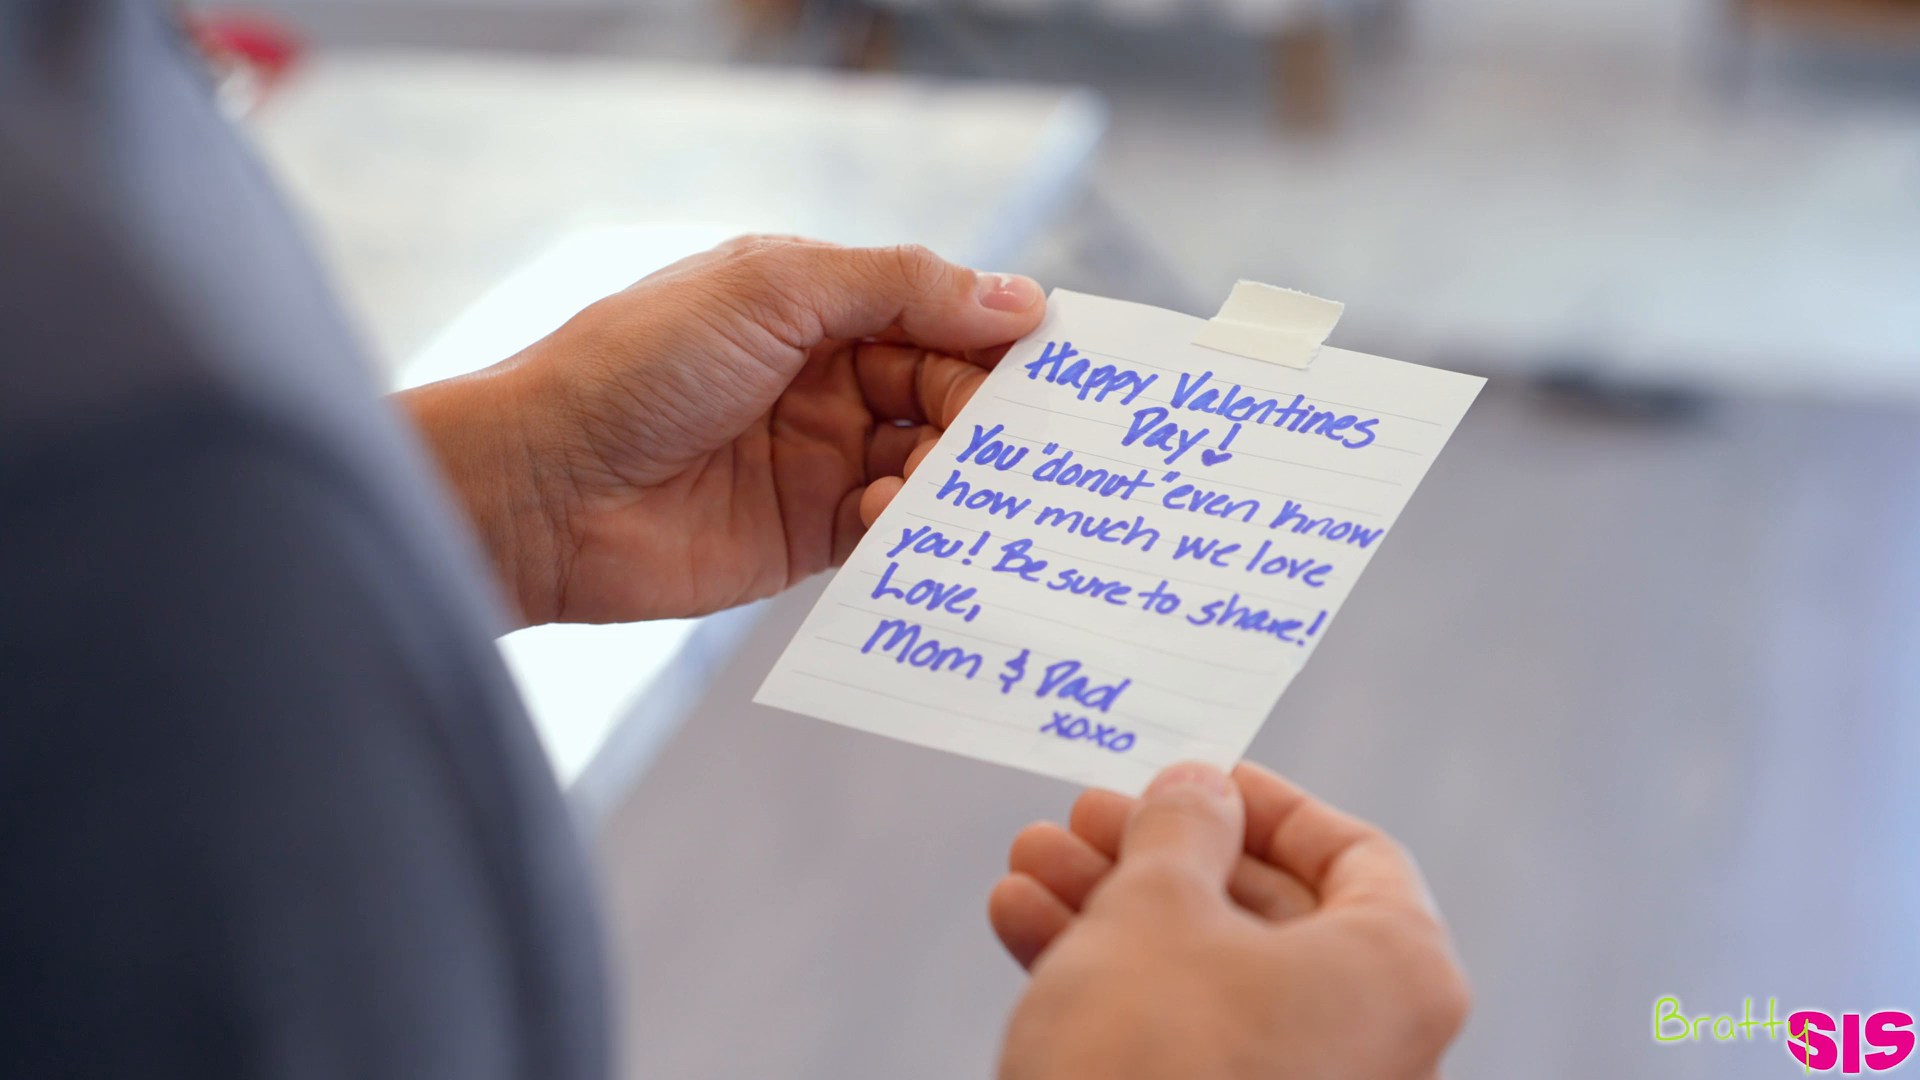 Happy Valentines
Day!
You "donut" even know
how much we love
you! Be sure to share!
Love,
Mom & Dad
xoxo
Bratty SIS